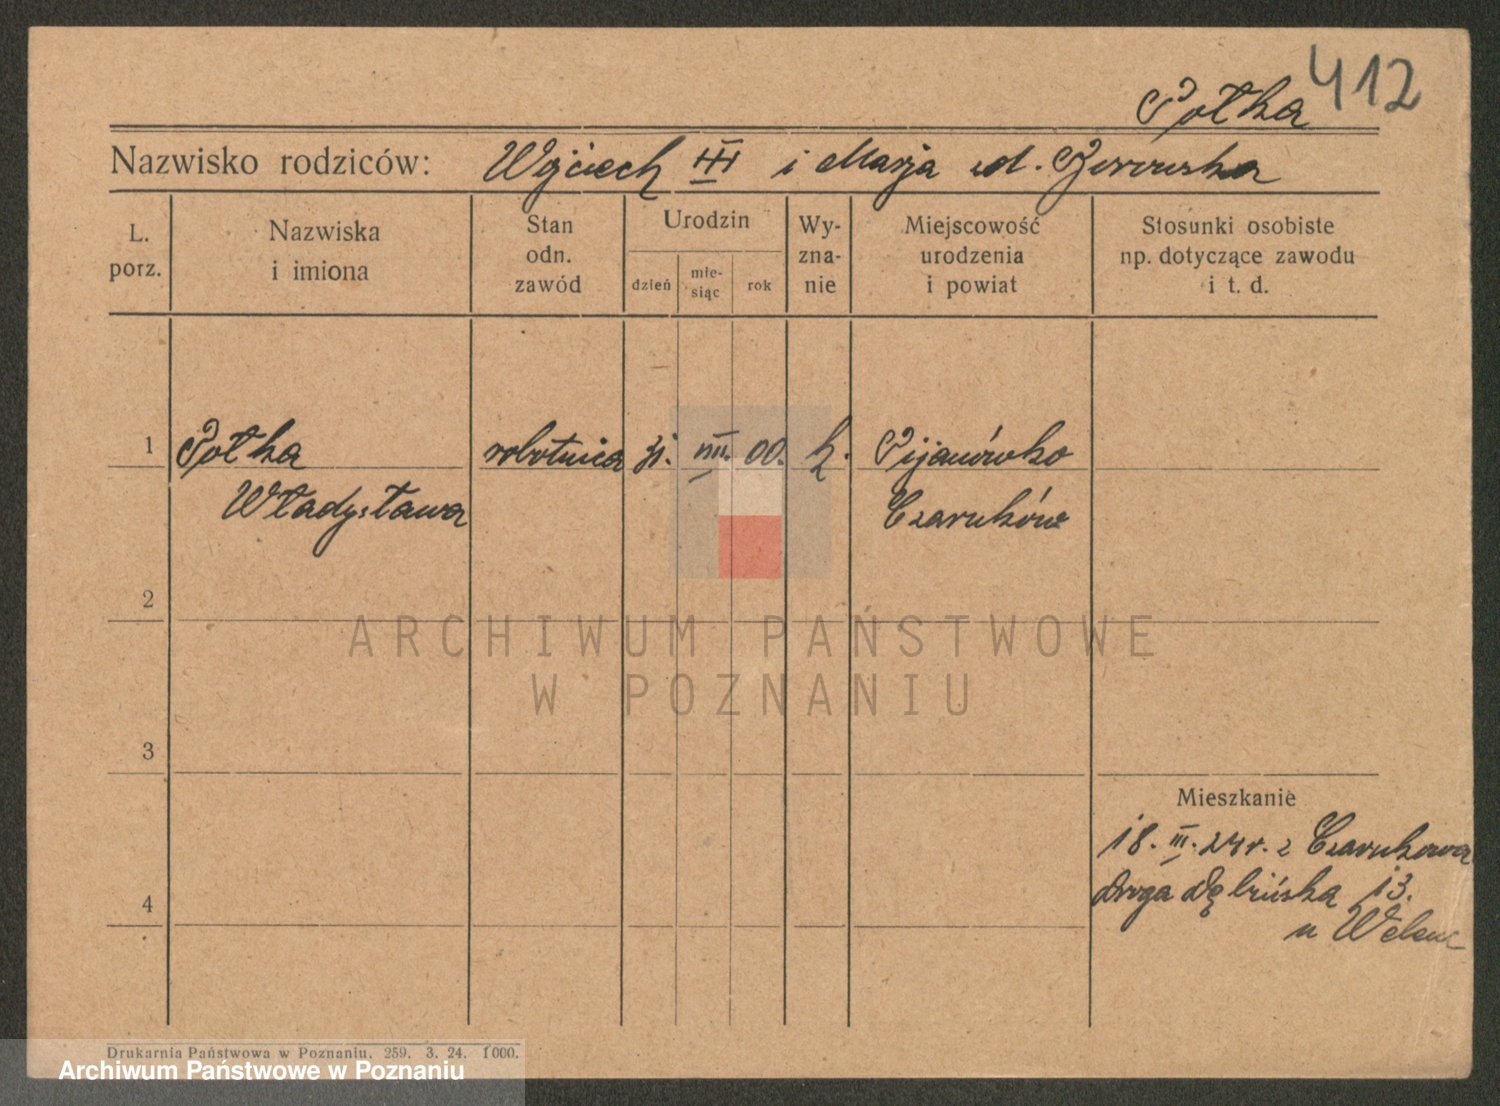 412
Połka
Nazwisko rodziców: Wojciech i Marja
L. porz.
Nazwiska i imiona
Stan odn. zawód
Urodzin
dzień
mie-siąc
rok
Wy-zna-nie
Miejscowość urodzenia i powiat
Stosunki osobiste np. dotyczące zawodu i t. d.
1 Połka robotnica VIII. 00. k. Pijanówko
Władysława Czarnków
2
ARCHIWUM PAŃSTWOWE
W POZNANIU
3
Mieszkanie
18. III. 24 r. z Czarnkowa
4
droga Dębińska 13.
u
Drukarnia Państwowa w Poznaniu. 259. 3. 24. 1000.
Archiwum Państwowe w Poznaniu